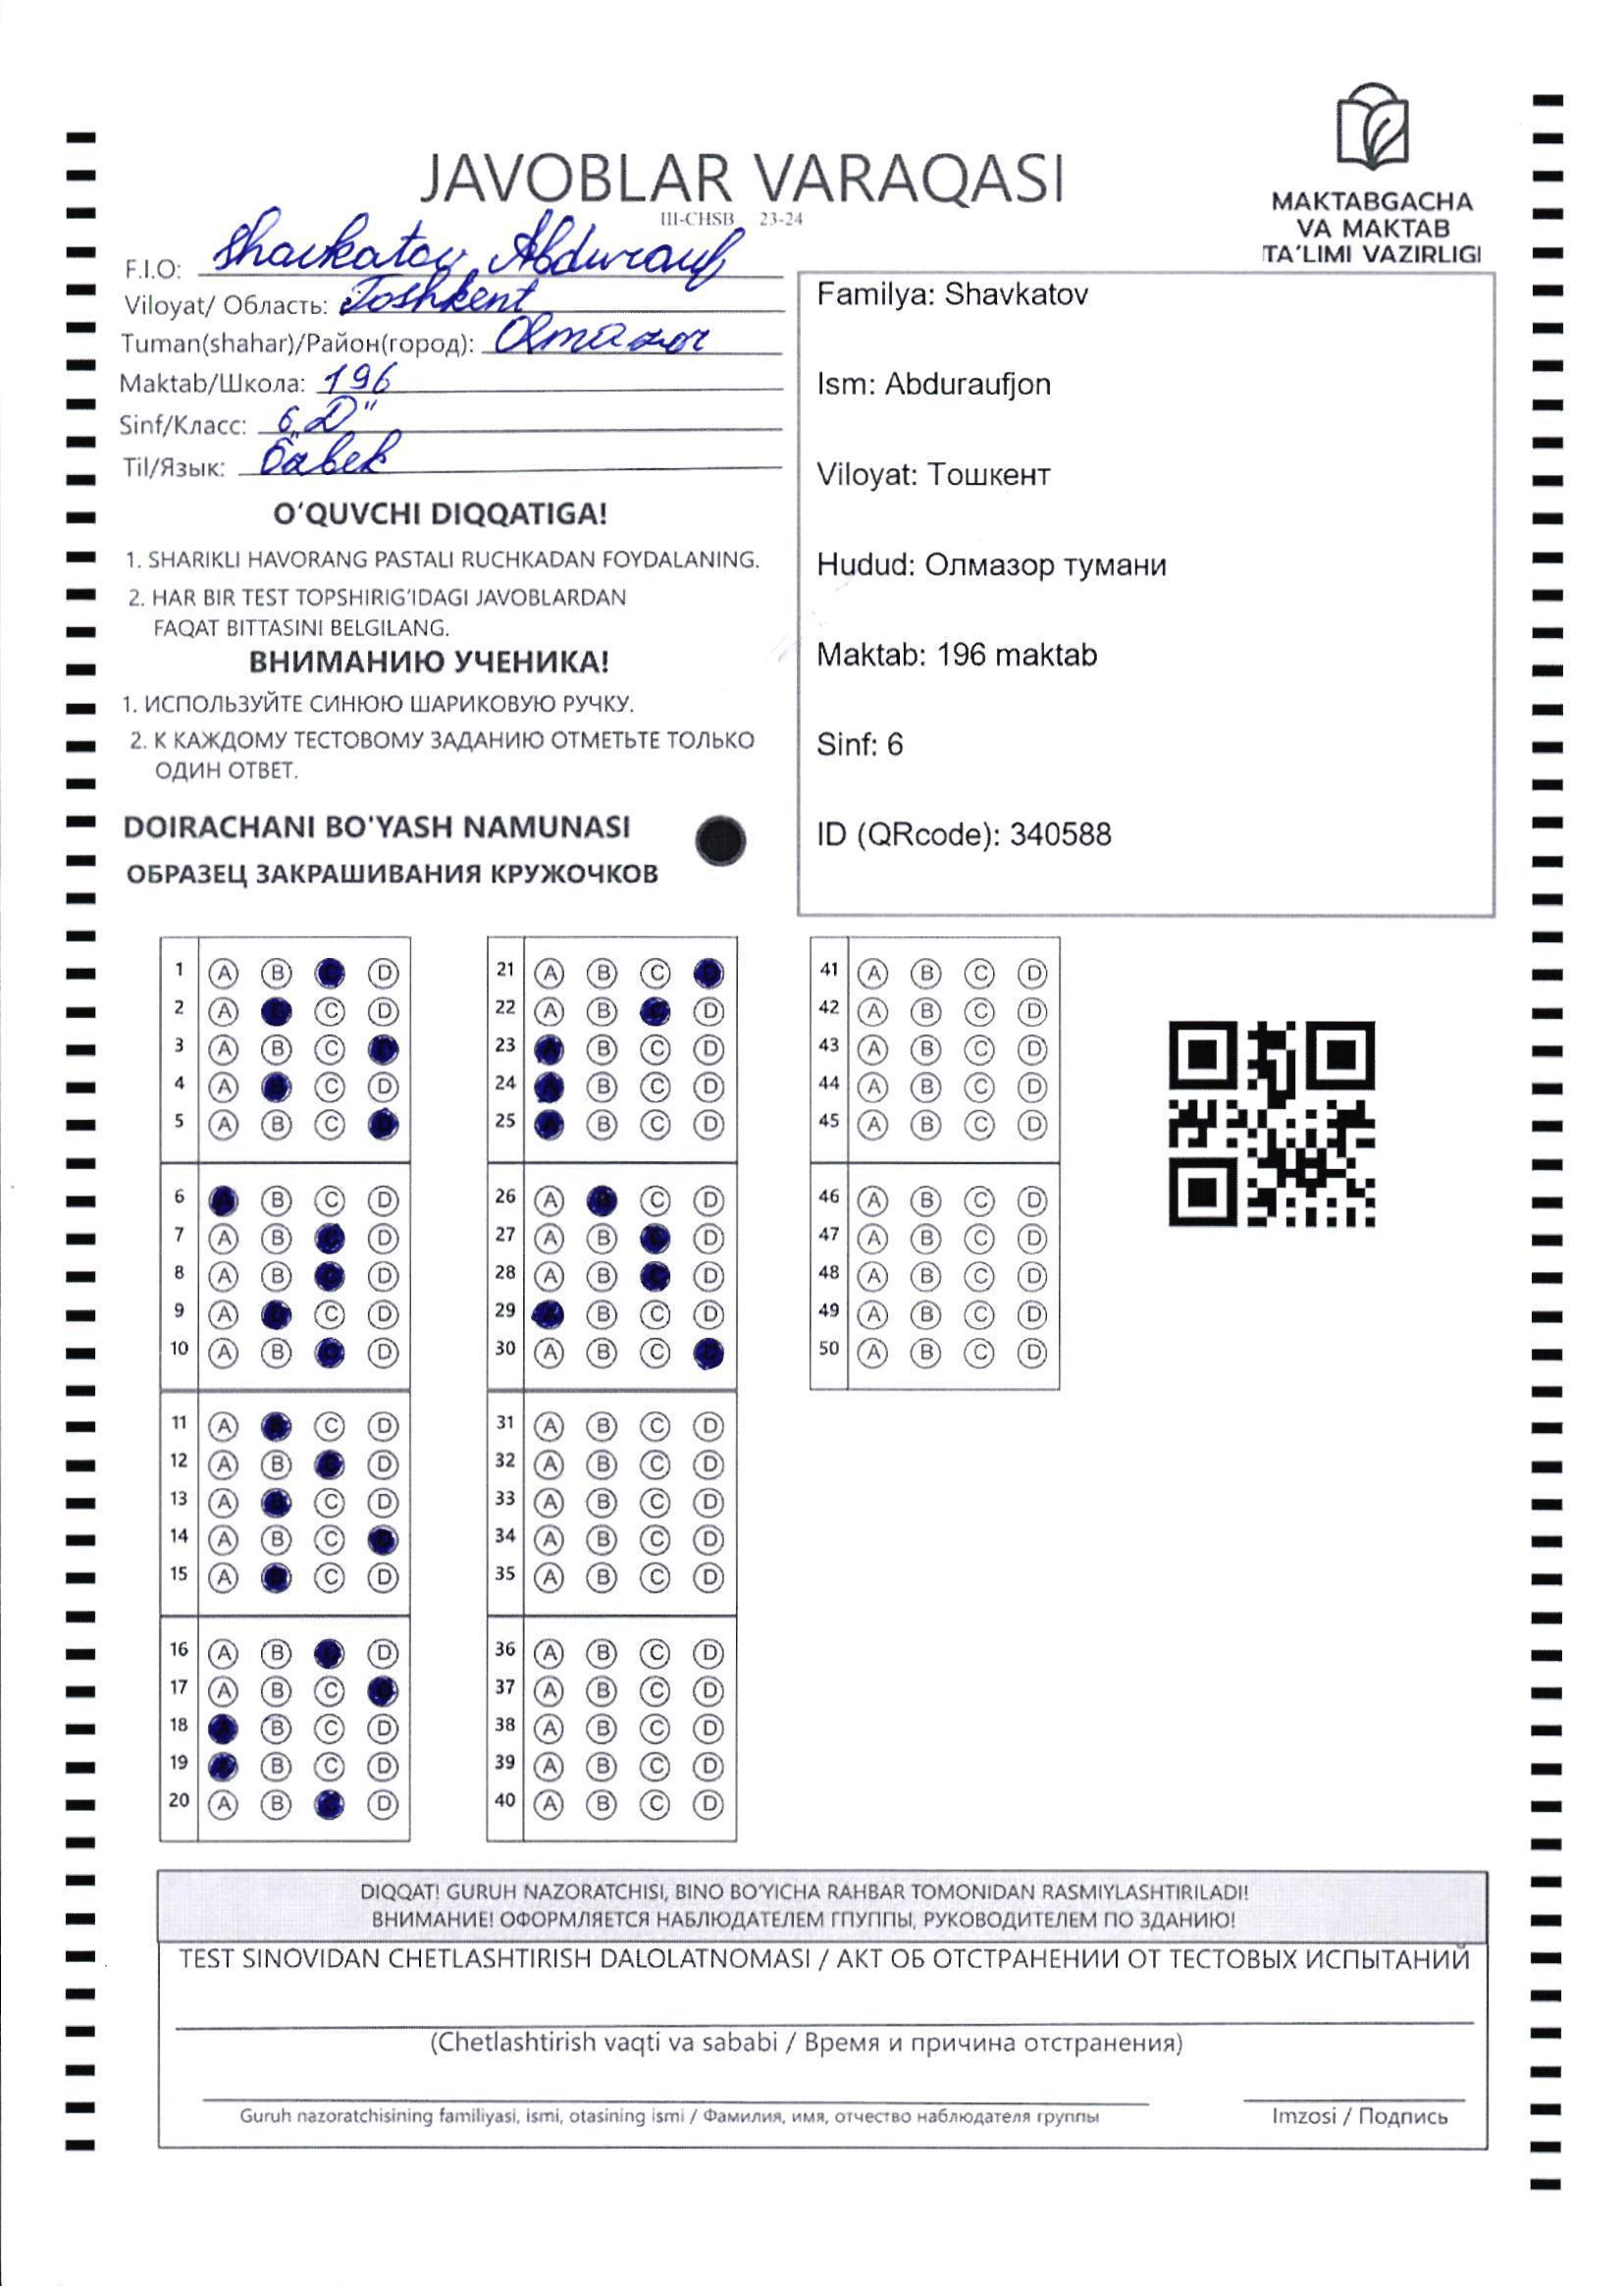 JAVOBLAR VARAQASI
III-CHSB 23-24
MAKTABGACHA
VA MAKTAB
TA'LIMI VAZIRLIGI
F.I.O: Shavkatov Abdurauf
Viloyat/ Область: Toshkent
Tuman(shahar)/Район(город): Olmazor
Maktab/Школа: 196
Sinf/Класс: 6 „D"
Til/Язык:
O'QUVCHI DIQQATIGA!
1. SHARIKLI HAVORANG PASTALI RUCHKADAN FOYDALANING.
2. HAR BIR TEST TOPSHIRIG'IDAGI JAVOBLARDAN
FAQAT BITTASINI BELGILANG.
ВНИМАНИЮ УЧЕНИКА!
1. ИСПОЛЬЗУЙТЕ СИНЮЮ ШАРИКОВУЮ РУЧКУ.
2. К КАЖДОМУ ТЕСТОВОМУ ЗАДАНИЮ ОТМЕТЬТЕ ТОЛЬКО
ОДИН ОТВЕТ.
DOIRACHANI BO'YASH NAMUNASI
ОБРАЗЕЦ ЗАКРАШИВАНИЯ КРУЖОЧКОВ
Familya: Shavkatov
Ism: Abduraufjon
Viloyat: Тошкент
Hudud: Олмазор тумани
Maktab: 196 maktab
Sinf: 6
ID (QRcode): 340588
1 A B C D
2 A B C D
3 A B C D
4 A B C D
5 A B C D
6 A B C D
7 A B C D
8 A B C D
9 A B C D
10 A B C D
11 A B C D
12 A B C D
13 A B C D
14 A B C D
15 A B C D
16 A B C D
17 A B C D
18 A B C D
19 A B C D
20 A B C D
21 A B C D
22 A B C D
23 A B C D
24 A B C D
25 A B C D
26 A B C D
27 A B C D
28 A B C D
29 A B C D
30 A B C D
31 A B C D
32 A B C D
33 A B C D
34 A B C D
35 A B C D
36 A B C D
37 A B C D
38 A B C D
39 A B C D
40 A B C D
41 A B C D
42 A B C D
43 A B C D
44 A B C D
45 A B C D
46 A B C D
47 A B C D
48 A B C D
49 A B C D
50 A B C D
DIQQAT! GURUH NAZORATCHISI, BINO BO'YICHA RAHBAR TOMONIDAN RASMIYLASHTIRILADI!
ВНИМАНИЕ! ОФОРМЛЯЕТСЯ НАБЛЮДАТЕЛЕМ ГПУППЫ, РУКОВОДИТЕЛЕМ ПО ЗДАНИЮ!
TEST SINOVIDAN CHETLASHTIRISH DALOLATNOMASI / АКТ ОБ ОТСТРАНЕНИИ ОТ ТЕСТОВЫХ ИСПЫТАНИЙ
(Chetlashtirish vaqti va sababi / Время и причина отстранения)
Guruh nazoratchisining familiyasi, ismi, otasining ismi / Фамилия, имя, отчество наблюдателя группы
Imzosi / Подпись